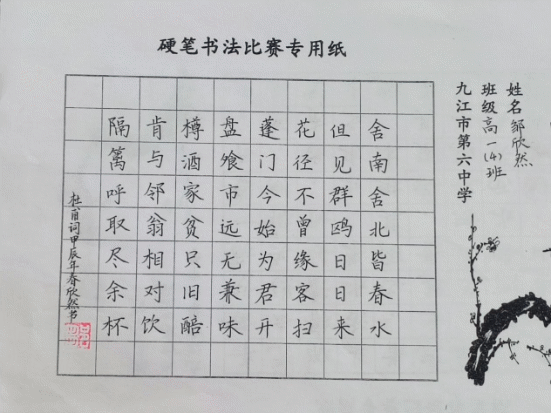 硬笔书法比赛专用纸
姓名邹欣然
班级高一(4)班
九江市第六中学
舍南舍北皆春水
但见群鸥日日来
花径不曾缘客扫
蓬门今始为君开
盘飧市远无兼味
樽酒家贫只旧醅
肯与邻翁相对饮
隔篱呼取尽余杯
杜甫词甲辰年春欣然书